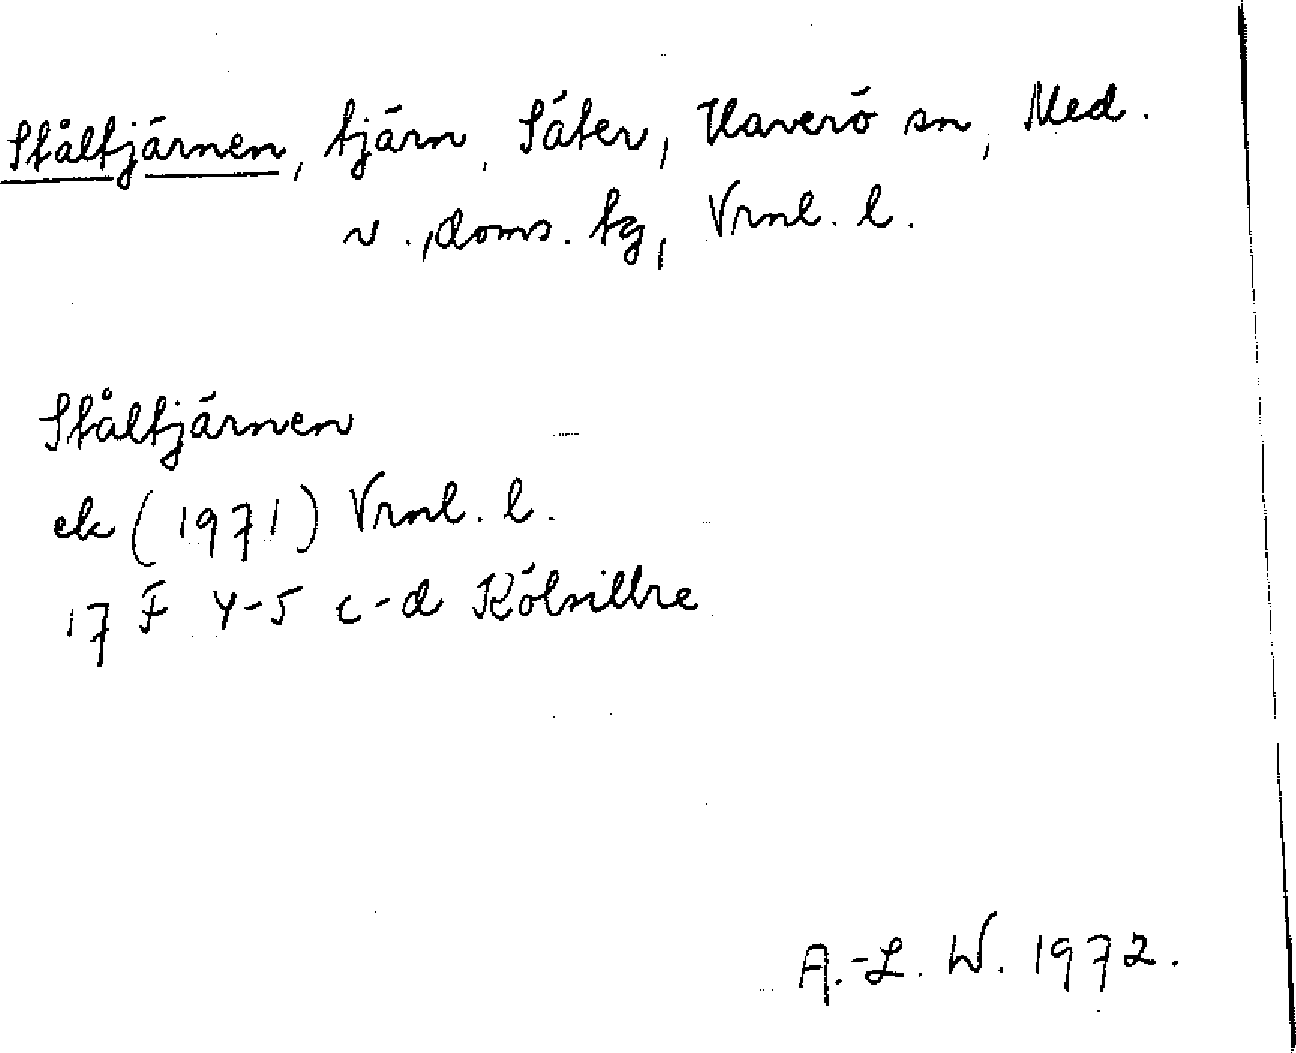 Ståltjärnen, tjärn, Säter, Haverö sn, Med.
v., doms. tg, Vrnl. l.
Ståltjärnen
ek (1971) Vrnl. l.
17 F 4-5 c-d Kölsillre
A.-L. W. 1972.